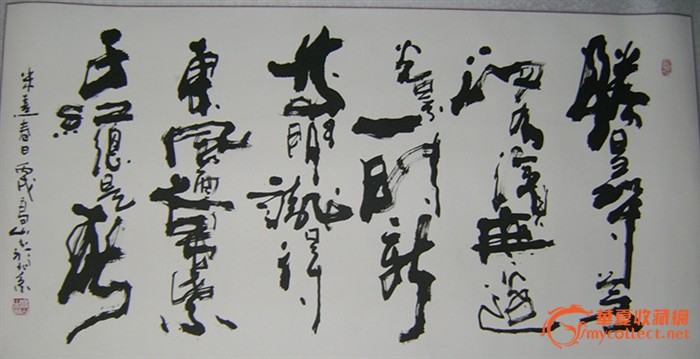 勝日尋芳
泗水濱無邊
光景一時新
等閒識得
東風面萬紫
千紅總是春
朱熹春日丙戌
華夏收藏網
mycollect.net